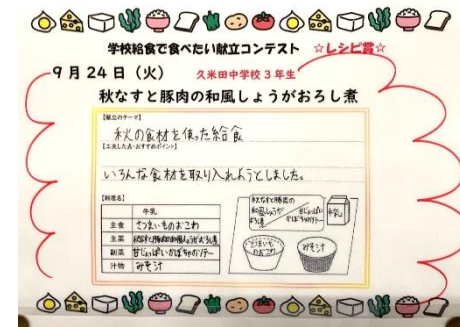 学校給食で食べたい献立コンテスト ☆レシピ賞☆
9月24日(火) 久米田中学校3年生
秋なすと豚肉の和風しょうがおろし煮
【献立のテーマ】
秋の食材を使った給食
【工夫した点・おすすめポイント】
いろんな食材を取り入れようとしました。
【料理名】
牛乳
主食 さつまいものおこわ
主菜 秋なすと豚肉の和風しょうがおろし煮
副菜 甘じょっぱいかぼちゃのソテー
汁物 みそ汁
秋なすと豚肉の
和風しょうが
おろし煮
甘じょっぱい
かぼちゃのソテー
牛乳
さつまいも
のおこわ
みそ汁